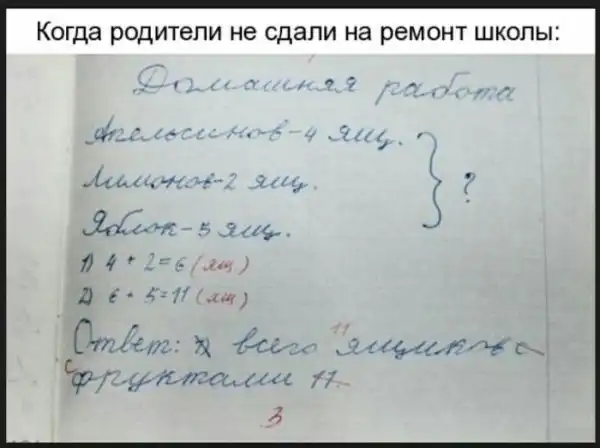 Когда родители не сдали на ремонт школы:
Домашняя работа
Апельсинов-4 ящ.
Лимонов-2 ящ.
?
Яблок-5 ящ.
1) 4+2=6 (ящ)
2) 6+5=11 (ящ)
11
Ответ: всего ящиков с
с
фруктами 11.
3